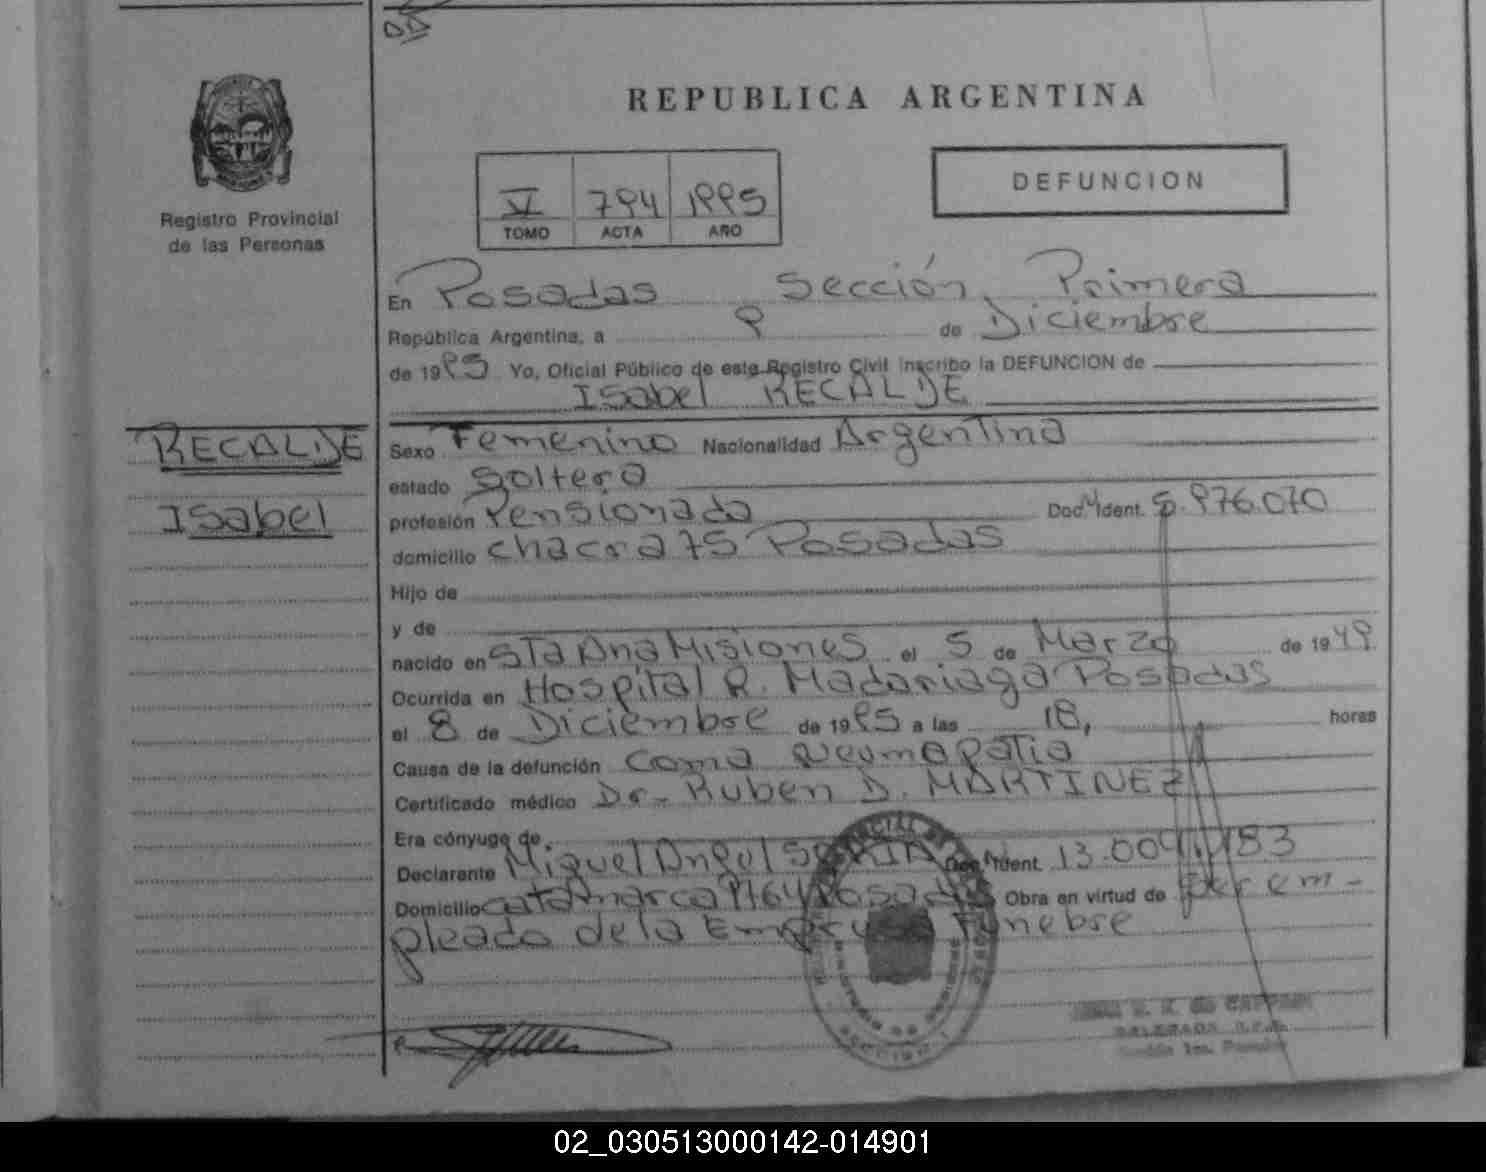 REPUBLICA ARGENTINA
Registro Provincial
de las Personas
VI 794 1995
TOMO ACTA AÑO
DEFUNCION
En Posadas Sección Primera
República Argentina, a 9 de Diciembre
de 1995 Yo, Oficial Público de este Registro Civil inscribo la DEFUNCION de
Isabel RECALDE
RECALDE
Isabel
Sexo Femenino Nacionalidad Argentina
estado Soltera
profesión Pensionada Doc. Ident. 5.976.070
domicilio chacra 75 Posadas
Hijo de
y de
nacido en Sta Ana Misiones el 5 de Marzo de 1949
Ocurrida en Hospital R. Madariaga Posadas
el 8 de Diciembre de 1995 a las 18, horas
Causa de la defunción Coma Neumopatia
Certificado médico Dr. Ruben D. MARTINEZ
Era cónyuge de
Declarante Miguel Angel SORIA Doc. Ident. 13.004.183
Domicilio catamarca 1764 Posadas Obra en virtud de ser em-
pleado de la Empresa Funebre
SECCION 1
02_030513000142-014901